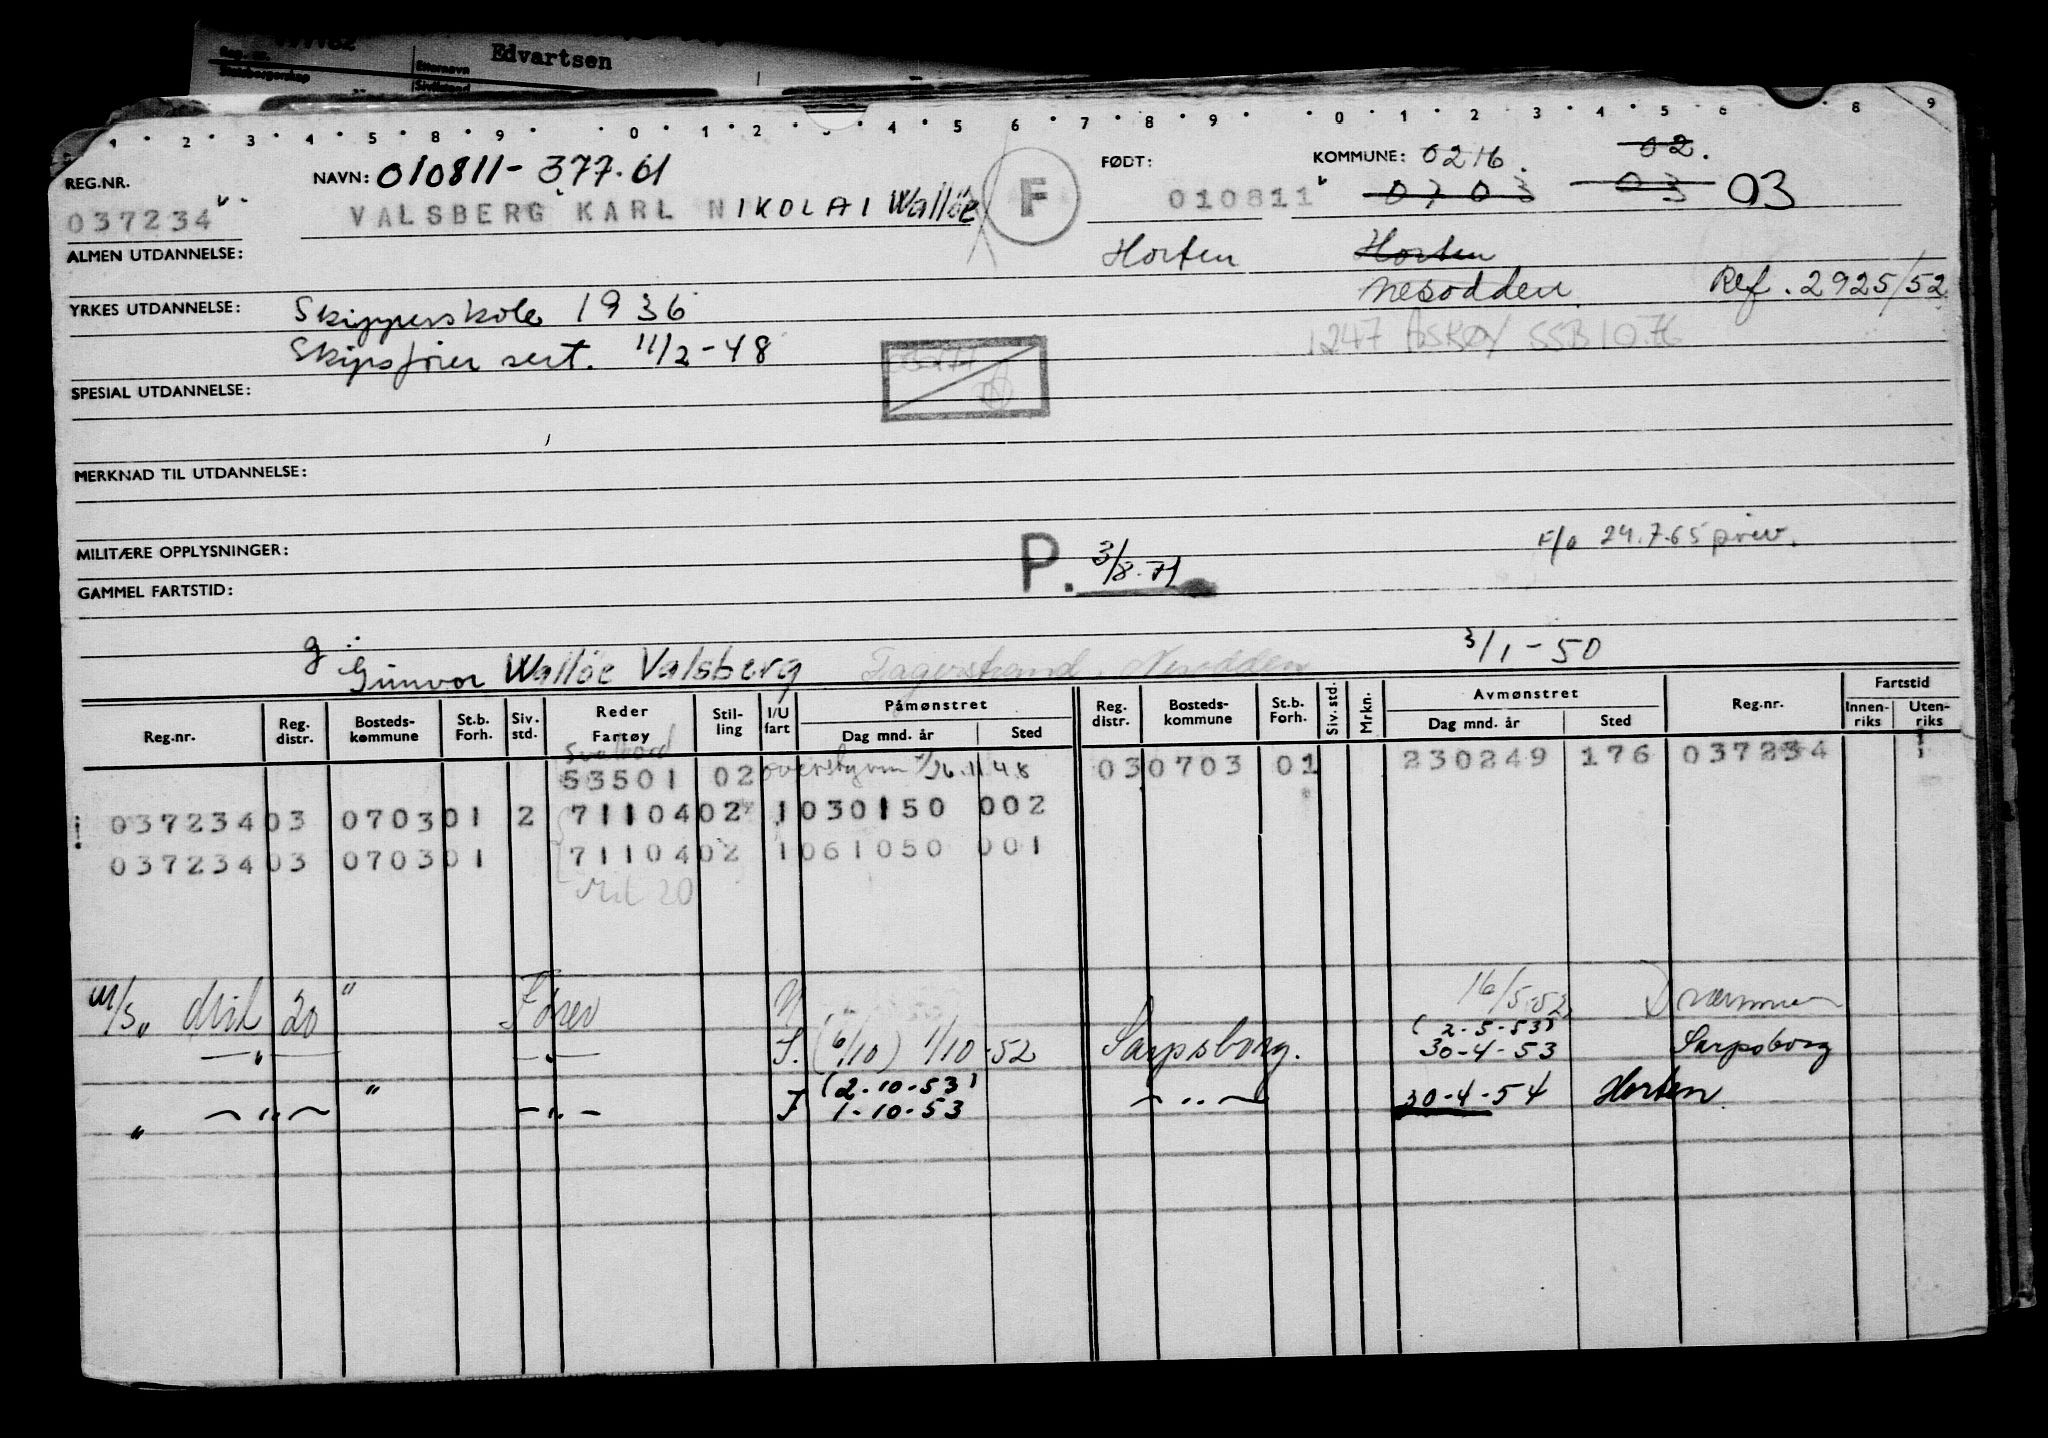 Edvartsen
Reg. nr.
Statsborgerskap
Etternavn
1 2 3 4 5 8 9 0 1 2 3 4 5 6 7 8 9 0 1 2 3 4 5 6 8 9
REG.NR. NAVN: 010811-377.01 FØDT: KOMMUNE: 0216. 02.
037234 VALSBERG KARL NIKOLAI Walløe F 010811 0703 03 03
ALMEN UTDANNELSE: Horten Horten
Nesodden Ref. 2925/52
YRKES UTDANNELSE: Skipperskole 1936
1247 ASKØY SSB 10.76
Skipsfører sert. 11/2-48
SPESIAL UTDANNELSE:
MERKNAD TIL UTDANNELSE:
MILITÆRE OPPLYSNINGER: F/o 24.7.65 priv.
P. 3/8.71
GAMMEL FARTSTID:
g: Gunvor Walløe Valsberg Fagerstrand, Nesodden 3/1-50
Reg.nr. Reg. distr. Bosteds-kommune St.b. Forh. Siv. std. Reder Fartøy Stil-ling I/U fart Påmønstret Dag mnd. år Sted Reg. distr. Bosteds-kommune St.b. Forh. Siv. std. Mrkn. Avmønstret Dag mnd. år Sted Reg.nr. Fartstid Innen-riks Uten-riks
Svalbard
53501 02 overstyrm 26.11.48 03 0703 01 230249 176 037234
037234 03 0703 01 2 71104 02 1 030150 002
037234 03 0703 01 71104 02 1 061050 001
Mil 20
m/s Mil 20 " Fører 16/5.52 Drammen
— " — — " — (6/10) 1/10-52 Sarpsborg. (2-5-53) 30-4-53 Sarpsborg
" — " — " — " — (2-10-53) 1-10-53 — " — 30-4-54 Horten